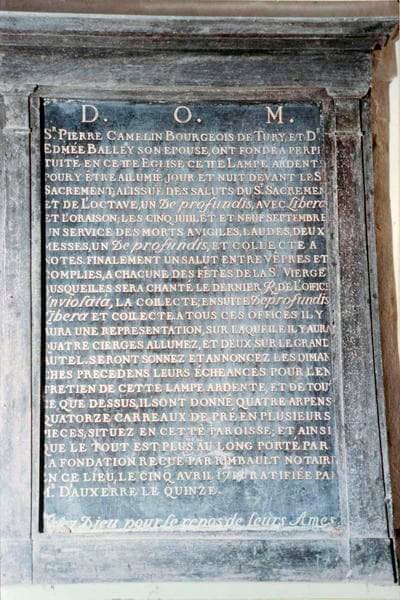 D. O. M.
Sr. PIERRE CAMELIN BOURGEOIS DE TURY, ET De
EDMÉE BALLEY SON EPOUSE, ONT FONDE A PERPE
TUITÉ EN CETTE EGLISE CETTE LAMPE ARDENTE
POUR Y ÊTRE ALLUMÉE JOUR ET NUIT DEVANT LE St
SACREMENT, A L'ISSUE DES SALUTS DU St. SACREMENT
ET DE L'OCTAVE, UN De profundis, AVEC Libera
ET L'ORAISON; LES CINQ JUILLET ET NEUF SEPTEMBRE
UN SERVICE DES MORTS A VIGILES, LAUDES, DEUX
MESSES, UN De profundis, ET COLLECTE A
NOTES. FINALEMENT UN SALUT ENTRE VEPRES ET
COMPLIES, A CHACUNE DES FÊTES DE LA Ste VIERGE
AUSQUELLES SERA CHANTÉ LE DERNIER R. DE L'OFFICE
Inviolata, LA COLLECTE; ENSUITE De profundis
Libera ET COLLECTE. A TOUS CES OFFICES IL Y
AURA UNE REPRESENTATION, SUR LAQUELLE IL Y AURA
QUATRE CIERGES ALLUMEZ, ET DEUX SUR LE GRAND
AUTEL. SERONT SONNEZ ET ANNONCEZ LES DIMAN
CHES PRECEDENS LEURS ÉCHEANCES POUR L'EN
TRETIEN DE CETTE LAMPE ARDENTE, ET DE TOUT
CE QUE DESSUS, ILS ONT DONNÉ QUATRE ARPENS
QUATORZE CARREAUX DE PRÉ EN PLUSIEURS
PIECES, SITUEZ EN CETTE PAROISSE; ET AINSI
QUE LE TOUT EST PLUS AU LONG PORTÉ PAR
LA FONDATION REÇUE PAR RIMBAULT NOTAIRE
EN CE LIEU, LE CINQ AVRIL RATIFIÉE PAR
M. D'AUXERRE LE QUINZE.
Dieu pour le repos de leurs Ames